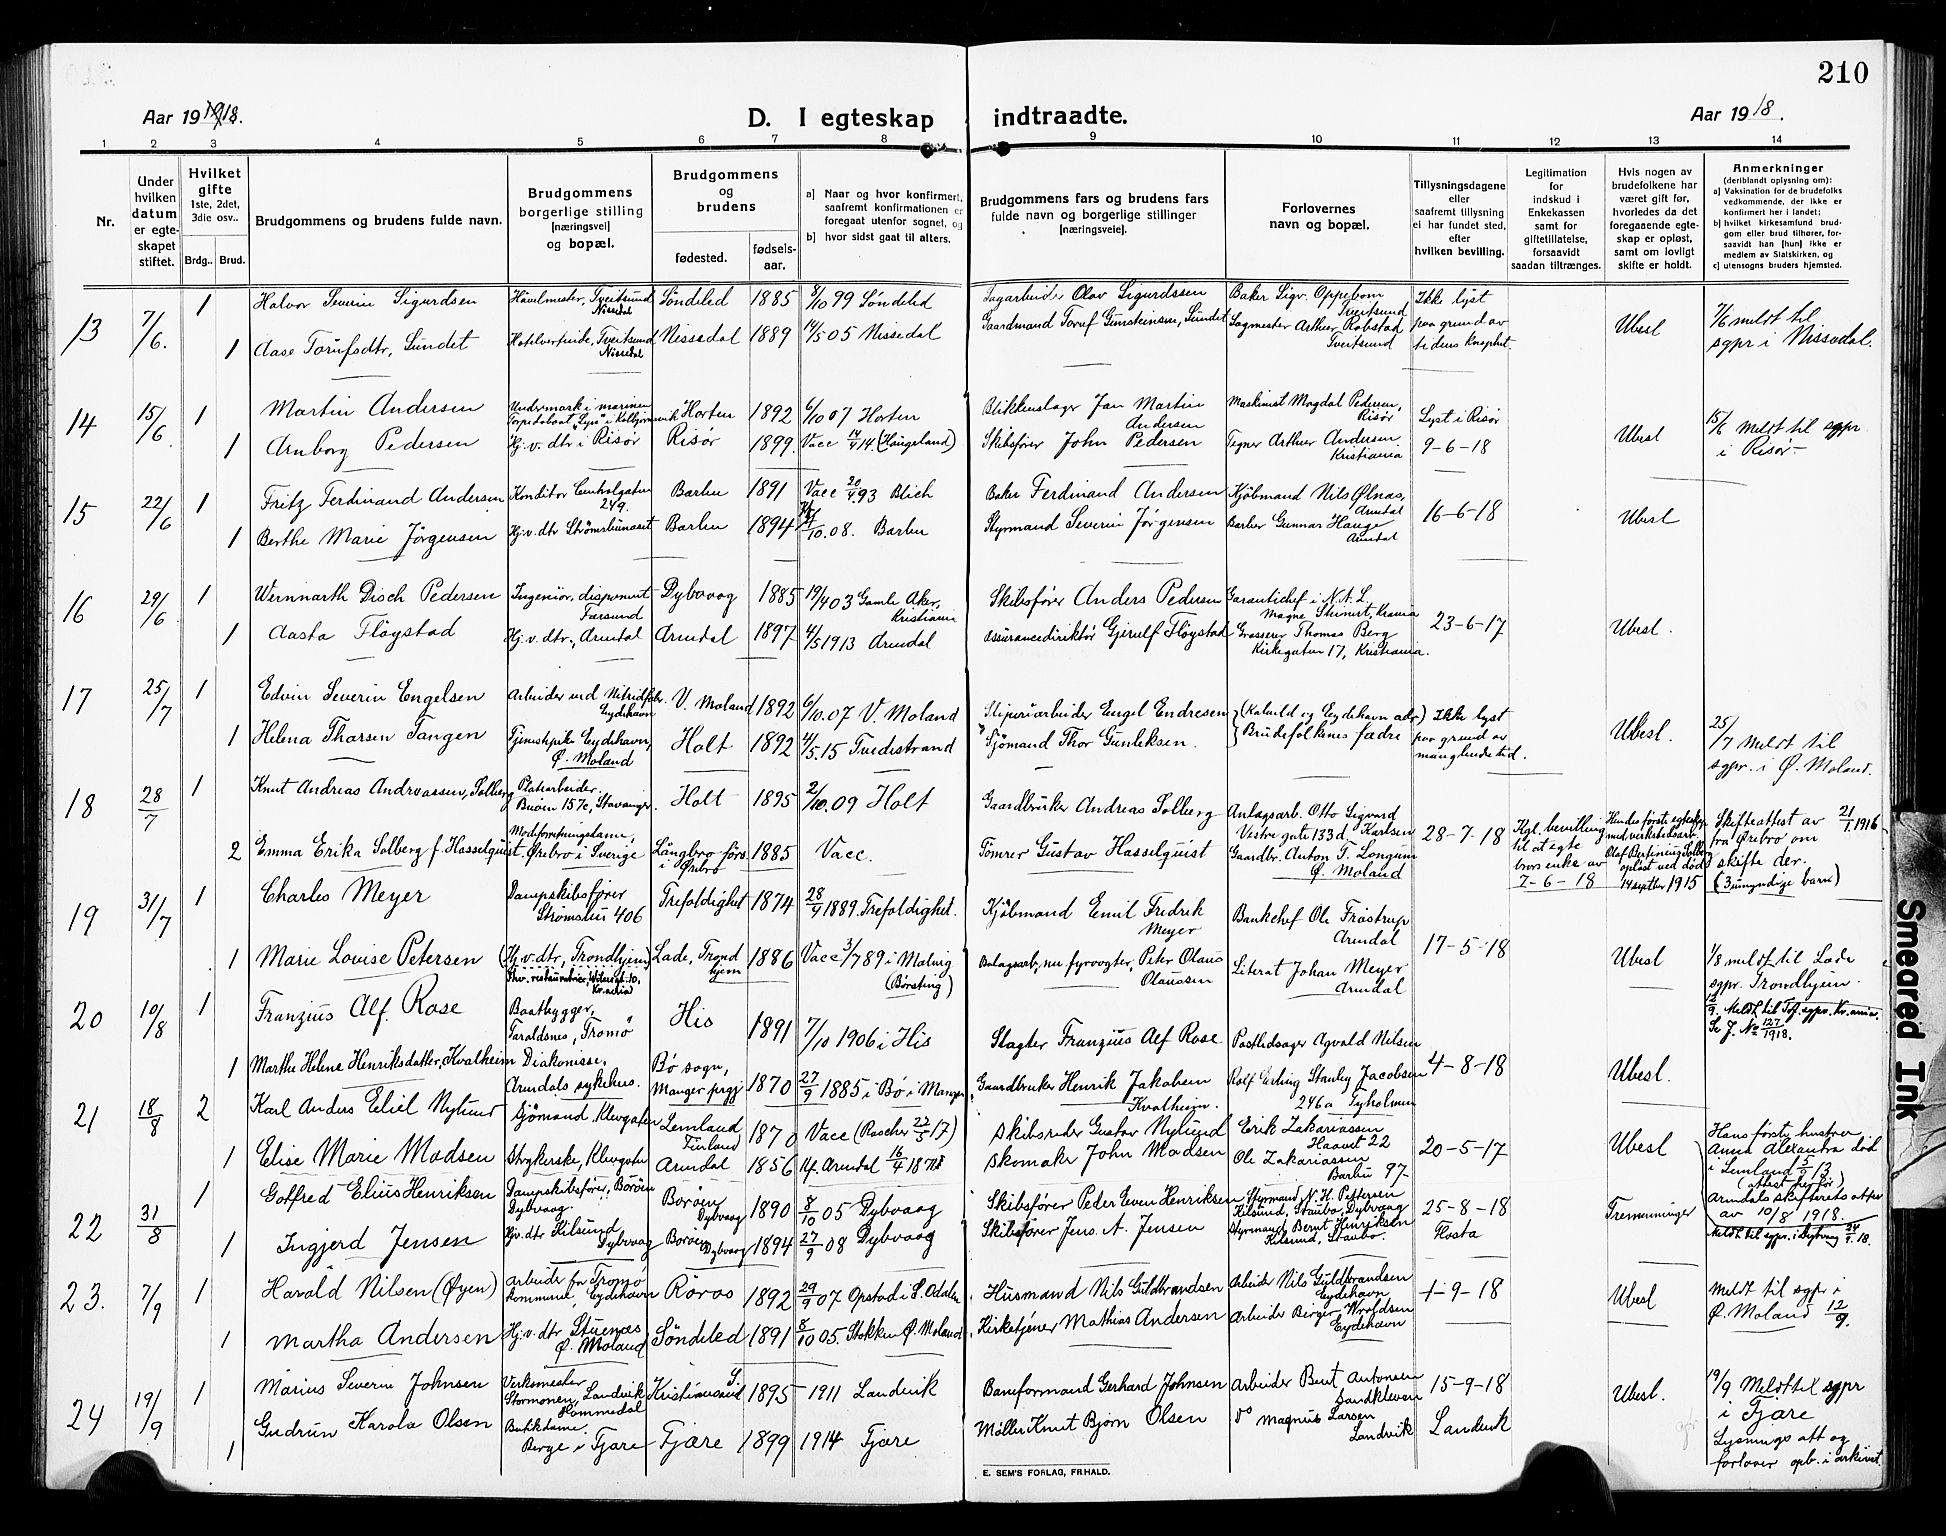 210
Aar 1918.
D. I egteskap indtraadte.
Aar 1918.
1 2 3 4 5 6 7 8 9 10 11 12 13 14
Nr.
Under hvilken datum er egteskapet stiftet.
Hvilket gifte 1ste, 2det, 3die osv..
Brdg.. Brud.
Brudgommens og brudens fulde navn.
Brudgommens borgerlige stilling [næringsvei] og bopæl.
Brudgommens og brudens
fødested.
fødselsaar.
a) Naar og hvor konfirmert, saafremt konfirmationen er foregaat utenfor sognet, og
b) hvor sidst gaat til alters.
Brudgommens fars og brudens fars fulde navn og borgerlige stillinger [næringsveie].
Forlovernes navn og bopæl.
Tillysningsdagene eller saafremt tillysning ei har fundet sted, efter hvilken bevilling.
Legitimation for indskud i Enkekassen samt for giftetillatelse, forsaavidt saadan tiltrænges.
Hvis nogen av brudefolkene har været gift før, hvorledes da det foregaaende egteskap er opløst, samt om lovligt skifte er holdt.
Anmerkninger
(deriblandt oplysning om):
a) Vaksination for de brudefolks vedkommende, der ikke er konfirmert her i landet;
b) hvilket kirkesamfund brudgom eller brud tilhører, forsaavidt han [hun] ikke er medlem av Statskirken, og
c) utensogns bruders hjemsted.
13 7/6. 1 Halvor Severin Sigurdsen Tveitsund Nissedal Söndeled 1885 8/10 99 Söndeled Sagarbeider Olav Sigurdssen Baker Sigv. Oppebom Tveitsund Ikke lyst paa grund av tidens knaphet. Ubesl 7/6 meldt til sgpr i Nissedal.
1 Aase Torufsdtr, Sundet Tveitsund Nissedal Nissedal 1889 14/5 05 Nissedal Gaardmand Toruf Gunsteinsen, Sundet Sagmester Arthur Robstad Tveitsund
14 15/6 1 Martin Andersen Undermark i marinen Horten 1892 6/10 07 Horten Blikkenslager Jan Martin Andersen Maskinist Magdal Pedersen, Risør Lyst i Risør 9-6-18 Ubesl 15/6 meldt til sgpr i Risør
1 Arnborg Pedersen Hj.v. dtr i Risør Risør 1899. Vacc 14/9 14. (Haugeland) Skibsfører John Pedersen Tegner Arthur Andersen Kristiania
15 22/6 1 Fritz Ferdinand Andersen Konditor 249. Barbu 1891 Vacc 20/9.93 Blich Baker Ferdinand Andersen Kjöbmand Nils Ølnas, Arendal 16-6-18 Ubesl
1 Berthe Marie Jörgensen Hj.v. dtr Strømsbunaset Barbu 1894 4/10.08. Barbu Styrmand Severin Jørgensen Barber Gunnar Hauge Arendal
16 29/6 1 Wernnarth Disch Pedersen Ingeniør, disponent Farsund Dybvaag 1885 19/4 03 Gamle Aker, Kristiania Skibsfører Anders Pedersen Garantichef i N.A.L. Magne Steinert, Krania 23-6-17 Ubesl.
1 Aasta Fløystad Hj.v. dtr., Arendal Arendal 1897 4/5 1913 Arendal Assurancedirektör Gjerulf Fløystad Grosserer Thomas Berg Kirkegaten 17, Kristiania.
17 25/7 1 Edvin Severin Engelsen Arbeider ved Nitridfabr. Eydehavn V. Moland 1892 6/10.07 V. Moland Engel Endresen Brudefolkenes fædre Ikke lyst paa grund av manglende tid. Ubesl. 25/7 Meldt til sgpr. i Ø. Moland.
1 Helena Tharsen Tangen Tjenestepike Eydehavn, Ø. Moland Holt 1892 4/5.15 Tvedestrand Sjömand Thor Gunleksen.
18 28/7 1 Knut Andreas Andreassen, Solberg Platearbeider. Buöen 157c, Stavanger. Holt 1895 2/10.09 Holt Gaardbruker Andreas Solberg Anlagsarb. Otto Sigvard Karlsen Vestre gate 133d 28-7-18 Kgl. bevilling til at egte brors enke av 7-6-18 Hendes første egteskap med verkstedsarb. Olaf Bertinius Solberg opløst ved død 14 septbr 1915 Skifteattest av 21/1.1916 fra Ørebro om skifte der. (3 umyndige barn)
2 Emma Erika Solberg f. Hasselquist. Ørebro i Sverige Långbro førs. i Ørebro 1885 Vacc. Tömrer Gustav Hasselquist Gaardbr. Anton T. Longum Ø. Moland
19 31/7 1 Charles Meyer Dampskibsfører Strømsbu 406 Trefoldighet 1874 28/4 1889. Trefoldighet. Kjöbmand Emil Fredrik Meyer Bankchef Ole Frøstrup Arendal 17-5-18 Ubesl 1/8 meldt til Lade sgpr. Trondhjem.
1 Marie Lovise Petersen (Hj.v. dtr, Trondhjem) Lade, Trondhjem 1886 Vacc 3/7 89 i Malvig (Børsting) Anlagsarb, nu fyrvogter, Peter Olaus Olaussen Literat Johan Meyer Arendal 12/9. Meldt til Tof. sgpr. Kr.ania. Se J. No 127/1918.
20 10/8 1 Franzius Alf. Rose Baatbygger, Faraldsnes, Tromø His 1891 7/10 1906 i His Slagter Franzius Alf Rose Postbdsager Agvald Nilsen 4-8-18 Ubesl.
1 Marthe Helene Henriksdatter, Kvalheim Diakonisse, Arendals sykehus. Bö sogn, Manger prgj 1870 27/9 1885 i Bö i Manger Gaardbruker Henrik Jakobsen Kvalheim. Rolf Erling Stanley Jacobsen 246a Tyholmen
21 18/8 2 Karl Anders Eliel Nylund Sjömand, Klevgaten Lemland Finland 1870 Vacc (Rascher 22/5 17) Skibsreder Gustav Nylund Erik Zakariassen Haavet 22 20-5-17 Ubesl Hans første hustru Anna Alexandra död i Lemland 5/5 13 (attest herfor) Arendals skifterets atpr av 10/8 1918.
1 Elise Marie Madsen Strykerske, Klevgaten Arendal 1856 Arendal 16/4 1871 Skomaker John Madsen Ole Zakariassen Barbu 97
22 31/8 1 Gotfred Elius Henriksen Dampskibsfører, Borøen Dybvaag. Borøen Dybvaag 1890 8/10 05 Dybvaag Skibsfører Peder Even Henriksen Styrmand N. H. Pettersen Kilsund, Staubo, Dybvaag 25-8-18 Flosta Tremenninger Meldt til sgpr. i Dybvaag 24/9.18.
1 Ingjerd Jensen Hj.v. dtr Kilsund Dybvaag Borøen Dybvaag 1894 27/9 08 Dybvaag Skibsfører Jens A. Jensen Styrmand Bernt Henriksen Kilsund, Staubo.
23. 7/9 1 Harald Nilsen (Øyen) Arbeider for Tromø kommune, Eydehavn Röros 1892 29/9 07 Opstad i S. Odalen Husmand Nils Guldbrandsen Arbeider Nils Guldbrandsen Eydehavn 1-9-18 Ubesl Meldt til sgpr i Ø. Moland 12/9.
1 Martha Andersen Hj.v. dtr Stuenæs Ø. Moland Söndeled 1891 8/10 05. Stokken Ø. Moland. Kirketjener Mathias Andersen Arbeider Birger Wroldsen Eydehavn
24 19/9 1 Marius Severin Johnsen Verksmester Stormonen, Landvik Hommedal Kristiansand S. 1895 1911 Landvik Baneformand Gerhard Johnsen Arbeider Bent Antonsen Sandkleven 15-9-18 Landvik Ubesl. 19/9 Meldt til sgpr i Fjære Lysnings att og forlover opb. i arkivet.
1 Gudrun Karola Olsen Butikdame. Berge i Fjære Fjære 1899 1914 Fjære Møller Knut Bjørn Olsen Do Magnus Larsen Landvik
E. SEM'S FORLAG, FRHALD.
Smeared Ink